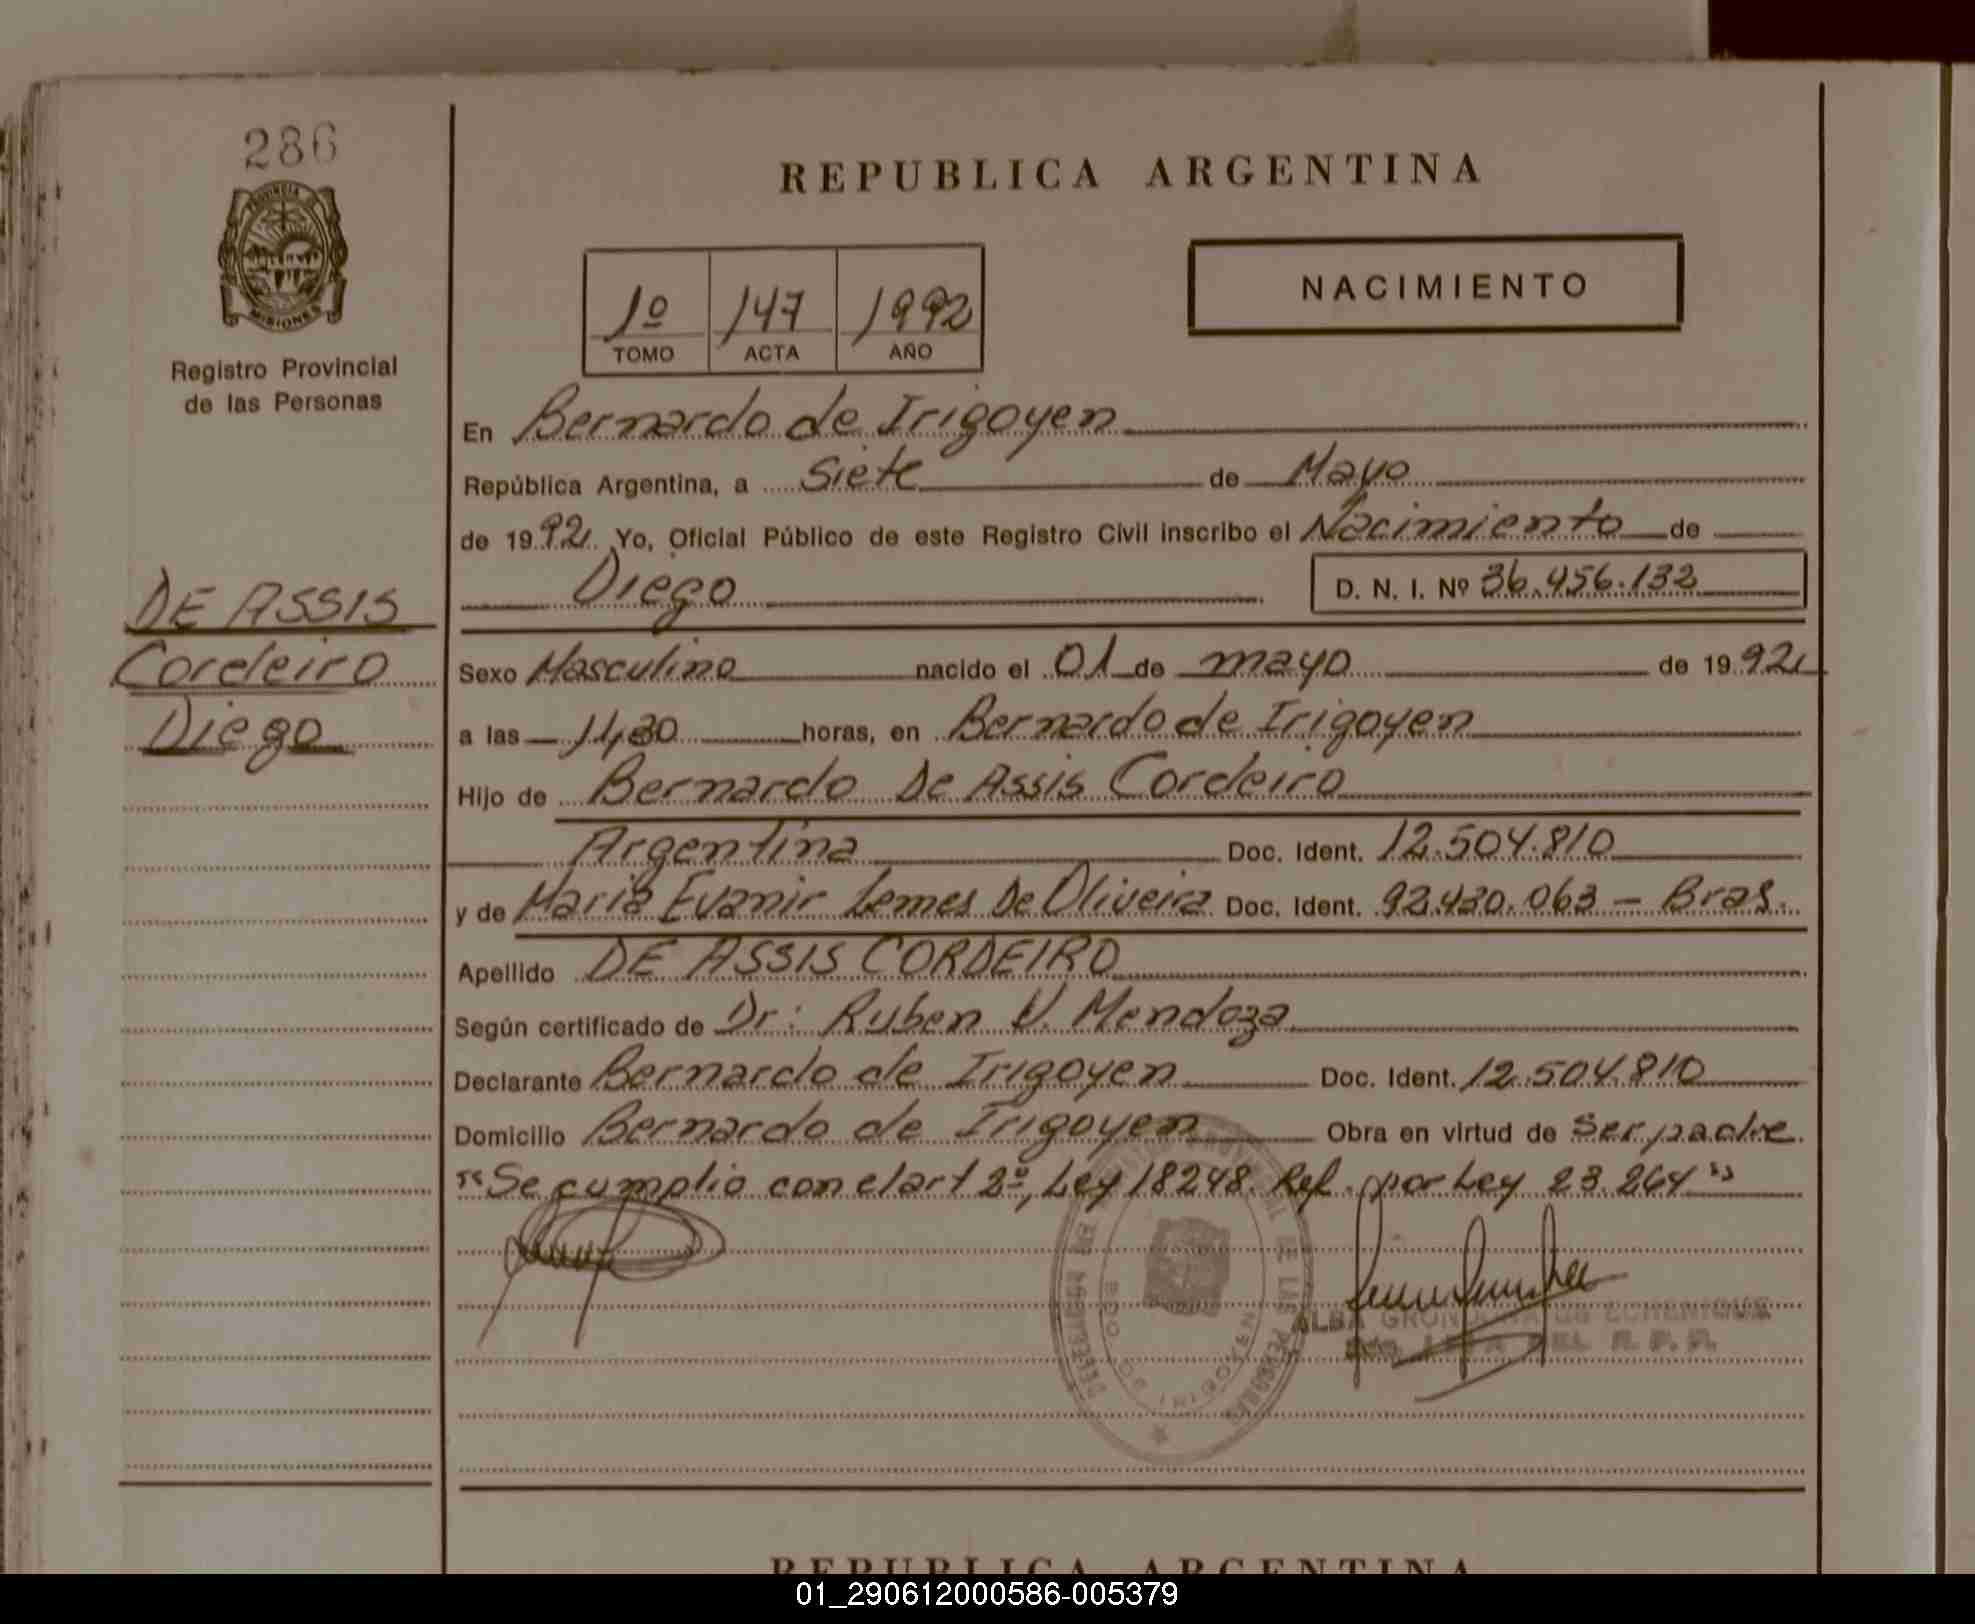 286
PROVINCIA DE
MISIONES
Registro Provincial
de las Personas
DE ASSIS
Cordeiro
Diego
REPUBLICA ARGENTINA
1º 147 1992
TOMO ACTA AÑO
NACIMIENTO
En Bernardo de Irigoyen
República Argentina, a Siete de Mayo
de 1992 Yo, Oficial Público de este Registro Civil inscribo el Nacimiento de
Diego D. N. I. Nº 36.456.132
Sexo Masculino nacido el 01 de mayo de 1992
a las 11,30 horas, en Bernardo de Irigoyen
Hijo de Bernardo De Assis Cordeiro
Argentina Doc. Ident. 12.504.810
y de Maria Evanir Lemes De Oliveira Doc. Ident. 92.430.063 - Bras.
Apellido DE ASSIS CORDEIRO
Según certificado de Dr: Ruben V. Mendoza
Declarante Bernardo de Irigoyen Doc. Ident. 12.504.810
Domicilio Bernardo de Irigoyen Obra en virtud de Ser padre
"Se cumplio con el art 2º, Ley 18248. Ref. por Ley 23.264"
DE LAS PERSONAS
ALBA
R. P. P.
REPUBLICA ARGENTINA
01_290612000586-005379